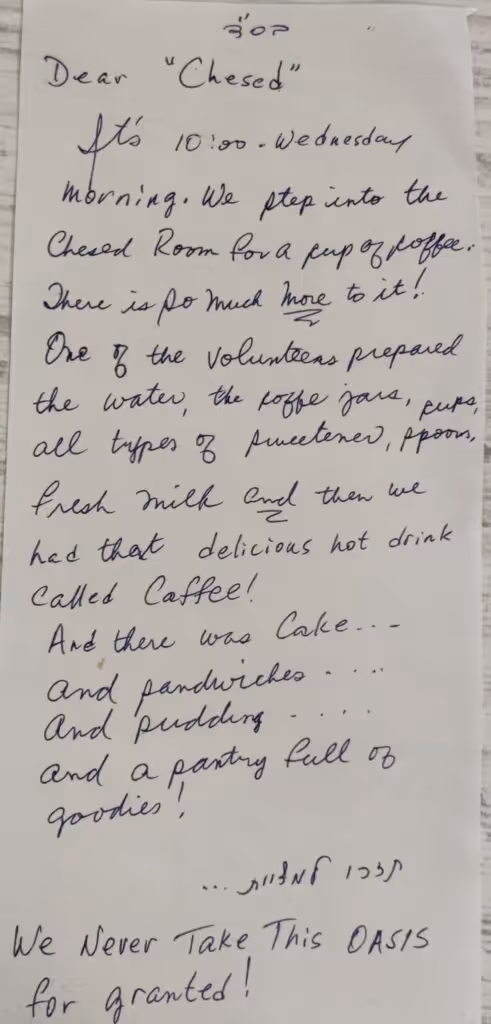 בס"ד
Dear "Chesed"
It's 10:00 - Wednesday
morning. We step into the
Chesed Room for a cup of coffee.
There is so much more to it!
One of the volunteers prepared
the water, the coffe jars, cups,
all types of sweetener, spoons,
fresh milk and then we
had that delicious hot drink
called Caffee!
And there was Cake...-
And sandwiches ....
And pudding ....
and a pantry full of
goodies!
תזכו למצוות ...
We Never Take This OASIS
for granted!